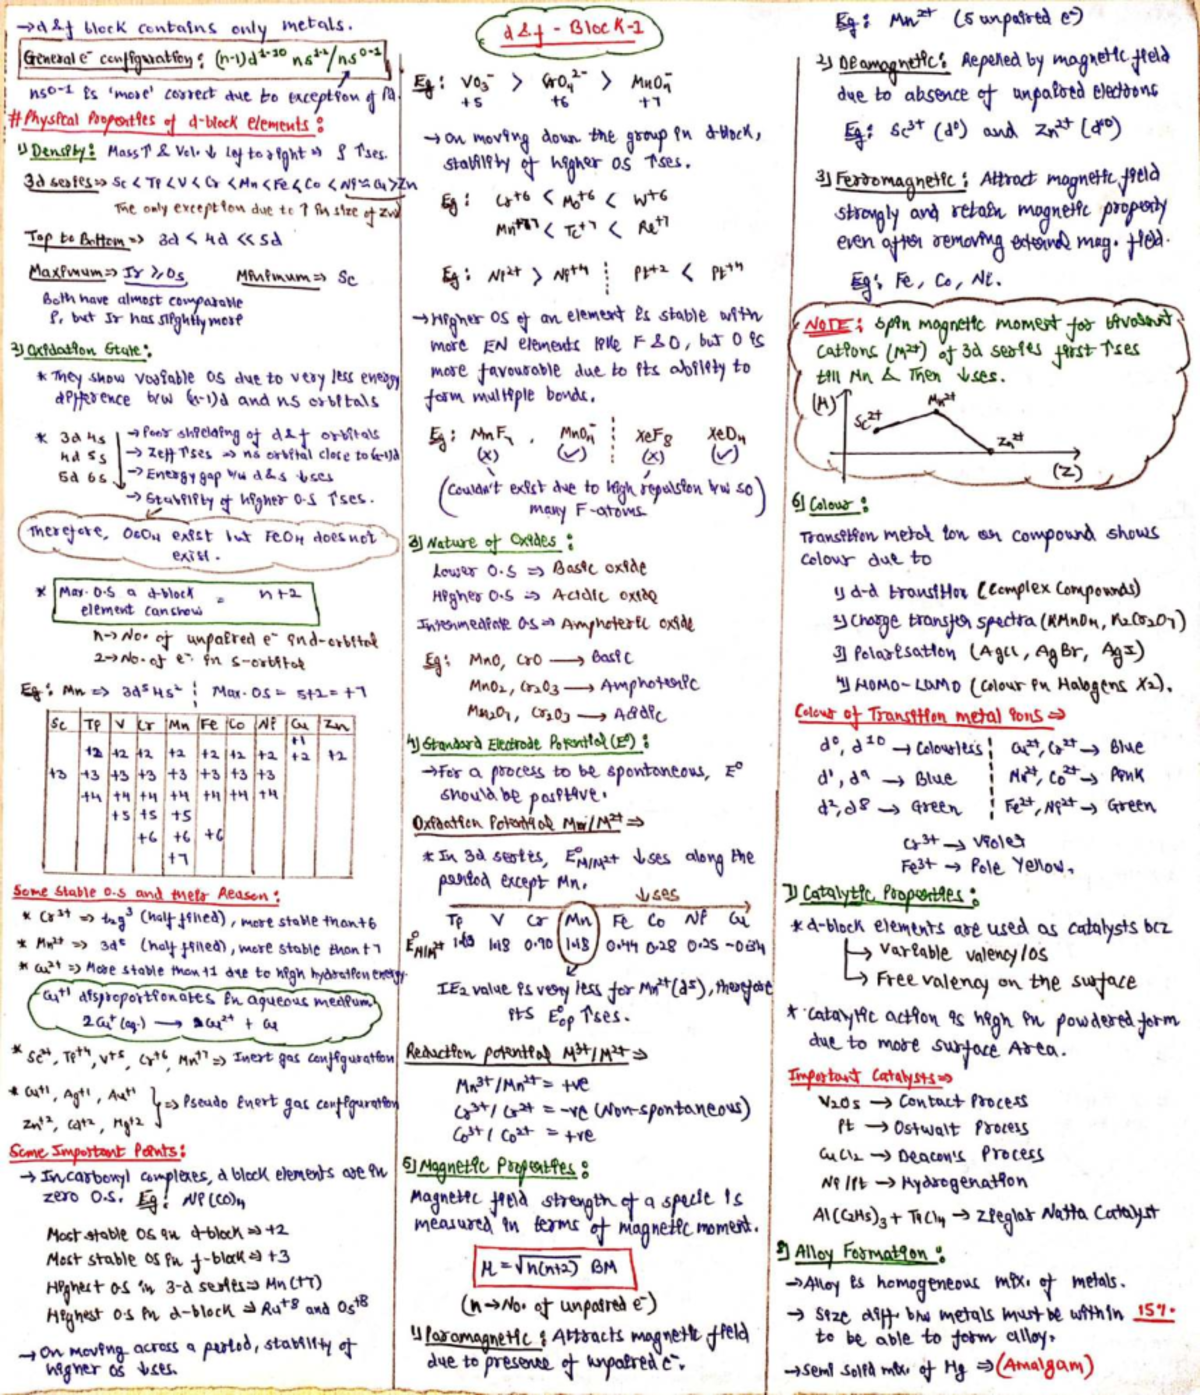 d & f - Block-1
→ d & f block contains only metals.
General e⁻ configuration: (n-1)d¹⁻¹⁰ ns¹⁻² / ns⁰⁻¹
ns⁰⁻¹ is 'more' correct due to exception of Pd.
# Physical Properties of d-block elements:
1) Density: Mass↑ & Vol. ↓ Lef to right ⇒ ρ ↑ses.
3d series ⇒ Sc < Ti < V < Cr < Mn < Fe < Co < Ni ≈ Cu > Zn
The only exception due to ↑ in size of Zn
Top to Bottom ⇒ 3d < 4d << 5d
Maximum ⇒ Ir ≥ Os Minimum ⇒ Sc
Both have almost comparable
ρ, but Ir has slightly more
2) Oxidation State:
* They show variable OS due to very less energy
difference b/w (n-1)d and ns orbitals
* 3d 4s → Poor shielding of d & f orbitals
4d 5s → Zeff ↑ses ⇒ ns orbital close to (n-1)d
5d 6s → Energy gap b/w d & s ↓ses
→ Stability of higher O.S ↑ses.
Therefore, OsO₄ exist but FeO₄ does not
exist.
* Max. O.S a d-block
element can show = n+2
n → No. of unpaired e⁻ in d-orbital
2 → No. of e⁻ in s-orbital
Eg: Mn ⇒ 3d⁵4s² ¦ Max. OS = 5+2 = +7
Sc Ti V Cr Mn Fe Co Ni Cu Zn
+1
+2 +2 +2 +2 +2 +2 +2 +2 +2
+3 +3 +3 +3 +3 +3 +3 +3
+4 +4 +4 +4 +4 +4 +4
+5 +5 +5
+6 +6 +6
+7
Some stable O.S and their Reason:
* Cr³⁺ ⇒ t₂g³ (half filled), more stable than +6
* Mn²⁺ ⇒ 3d⁵ (half filled), more stable than +7
* Cu²⁺ ⇒ More stable than +1 due to high hydration energy.
Cu⁺¹ disproportionates in aqueous medium
2Cu⁺(aq.) → Cu²⁺ + Cu
* Sc³⁺, Ti⁺⁴, V⁺⁵, Cr⁺⁶, Mn⁺⁷ ⇒ Inert gas configuration
* Cu⁺¹, Ag⁺¹, Au⁺¹
Zn⁺², Cd⁺², Hg⁺² } ⇒ Pseudo inert gas configuration
Some Important Points:
→ In carbonyl complexes, d block elements are in
zero O.S. Eg: Ni(CO)₄
Most stable OS in d-block ⇒ +2
Most stable OS in f-block ⇒ +3
Highest O.S in 3-d series ⇒ Mn (+7)
Highest O.S in d-block ⇒ Ru⁺⁸ and Os⁺⁸
→ On moving across a period, stability of
higher OS ↓ses.
Eg: VO₃⁻ > CrO₄²⁻ > MnO₄⁻
+5 +6 +7
→ On moving down the group in d-block,
stability of higher OS ↑ses.
Eg: Cr⁺⁶ < Mo⁺⁶ < W⁺⁶
Mn⁺⁷ < Tc⁺⁷ < Re⁺⁷
Eg: Ni²⁺ > Ni⁺⁴ ¦ Pt⁺² < Pt⁺⁴
→ Higher OS of an element is stable with
more EN elements like F & O, but O is
more favourable due to its ability to
form multiple bonds.
Eg: MnF₇, MnO₄⁻ ¦ XeF₈ XeO₄
(×) (✓) (×) (✓)
(Couldn't exist due to high repulsion b/w so)
many F-atoms
3) Nature of Oxides:
Lower O.S ⇒ Basic oxide
Higher O.S ⇒ Acidic oxide
Intermediate O.S ⇒ Amphoteric oxide
Eg: MnO, CrO → Basic
MnO₂, Cr₂O₃ → Amphoteric
Mn₂O₇, CrO₃ → Acidic
4) Standard Electrode Potential (E°):
→ For a process to be spontaneous, E°
should be positive.
Oxidation Potential M/M²⁺ ⇒
* In 3d series, E°M/M²⁺ ↓ses along the
period except Mn.
↓ses
Ti V Cr Mn Fe Co Ni Cu
E°M/M²⁺ 1.63 1.18 0.90 1.18 0.44 0.28 0.25 -0.34
IE₂ value is very less for Mn²⁺(d⁵), therefore
its E°op ↑ses.
Reduction potential M³⁺/M²⁺ ⇒
Mn³⁺/Mn²⁺ = +ve
Cr³⁺/Cr²⁺ = -ve (Non-spontaneous)
Co³⁺/Co²⁺ = +ve
5) Magnetic Properties:
Magnetic field strength of a specie is
measured in terms of magnetic moment.
μ = √n(n+2) BM
(n → No. of unpaired e⁻)
1) Paramagnetic: Attracts magnetic field
due to presence of unpaired e⁻.
Eg: Mn²⁺ (5 unpaired e⁻)
2) Diamagnetic: Repelled by magnetic field
due to absence of unpaired electrons
Eg: Sc³⁺ (d⁰) and Zn²⁺ (d¹⁰)
3) Ferromagnetic: Attract magnetic field
strongly and retain magnetic property
even after removing external mag. field.
Eg: Fe, Co, Ni.
NOTE: Spin magnetic moment for bivalent
cations (M²⁺) of 3d series first ↑ses
till Mn & Then ↓ses.
(μ) Sc²⁺ Mn²⁺ Zn²⁺
(Z)
6) Colour:
Transition metal ion or compound shows
colour due to
1) d-d transition (Complex compounds)
2) Charge transfer spectra (KMnO₄, K₂Cr₂O₇)
3) Polarisation (AgCl, AgBr, AgI)
4) HOMO-LUMO (Colour in Halogens X₂).
Colour of Transition metal ions ⇒
d⁰, d¹⁰ → Colourless ¦ Cu²⁺, Cr²⁺ → Blue
d¹, d⁹ → Blue ¦ Mn²⁺, Co²⁺ → Pink
d², d⁸ → Green ¦ Fe²⁺, Ni²⁺ → Green
Cr³⁺ → Violet
Fe³⁺ → Pale Yellow.
7) Catalytic Properties:
* d-block elements are used as catalysts bcz
↳ Variable valency/OS
↳ Free valency on the surface
* Catalytic action is high in powdered form
due to more surface Area.
Important Catalysts ⇒
V₂O₅ → Contact Process
Pt → Ostwalt Process
CuCl₂ → Deacon's Process
Ni/Pt → Hydrogenation
Al(C₂H₅)₃ + TiCl₄ → Zieglar Natta Catalyst
8) Alloy Formation:
→ Alloy is homogeneous mix. of metals.
→ Size diff b/w metals must be within 15%
to be able to form alloy.
→ Semi solid mix of Hg ⇒ (Amalgam)